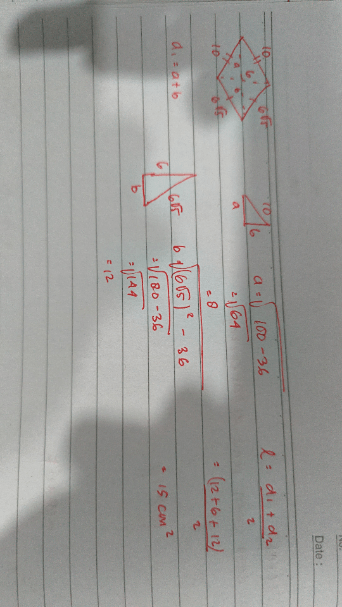 Date :
10
10
6
6√5
6√5
d₁ = a+b
10
a
6
a = √100-36
= √64
= 8
6
6√5
b
b √(6√5)² - 36
= √180-36
= √144
= 12
l = d₁ + d₂
2
= (12+6+12)
2
= 15 cm²